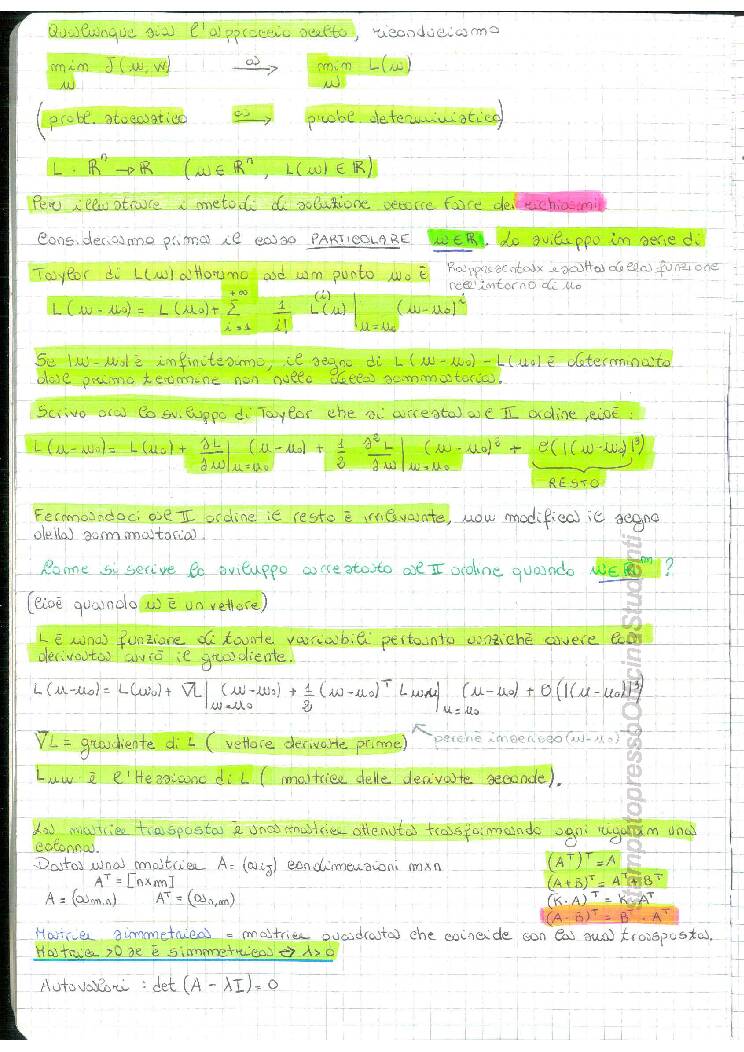 Qualunque sia l'approccio scelto, riconduciamo
min J(u,w) ⟶ min L(u)
u u
(probl. stocastico ⟶ probl. deterministico)
L : ℝⁿ → ℝ (u ∈ ℝⁿ, L(u) ∈ ℝ)
Per illustrare i metodi di soluzione occorre fare dei richiami
Consideriamo prima il caso PARTICOLARE u∈ℝ. Lo sviluppo in serie di
Taylor di L(u) attorno ad un punto u₀ è
Rappresentaz esatta della funzione
nell'intorno di u₀
L(u-u₀) = L(u₀) + ∑_{i=1}^{+∞} 1/i! L^{(i)}(u)|_{u=u₀} (u-u₀)^i
Se |u-u₀| è infinitesimo, il segno di L(u-u₀) - L(u₀) è determinato
dal primo termine non nullo della sommatoria.
Scrivo ora lo sviluppo di Taylor che si arresta al II ordine, cioè:
L(u-u₀) = L(u₀) + ∂L/∂u|_{u=u₀} (u-u₀) + 1/2 ∂²L/∂u|_{u=u₀} (u-u₀)² + O(|(u-u₀)|³)
RESTO
Fermandoci al II ordine il resto è irrilevante, non modifica il segno
della sommatoria.
Come si scrive lo sviluppo arrestato al II ordine quando u∈ℝᵐ ?
(cioè quando u è un vettore)
L è una funzione di tante variabili pertanto anzichè avere la
derivata avrà il gradiente.
L(u-u₀) = L(u₀) + ∇L|_{u=u₀} (u-u₀) + 1/2 (u-u₀)ᵀ Luu|_{u=u₀} (u-u₀) + O(|(u-u₀)|³)
∇L = gradiente di L (vettore derivate prime)
perchè (u-u₀)
Luu è l'Hessiano di L (matrice delle derivate seconde).
La matrice trasposta è una matrice ottenuta trasformando ogni riga in una
colonna.
Data una matrice A = (aij) con dimensioni m×n
Aᵀ = [n×m]
A = (am,n) Aᵀ = (an,m)
(Aᵀ)ᵀ = A
(A+B)ᵀ = Aᵀ+Bᵀ
(K·A)ᵀ = K·Aᵀ
(A·B)ᵀ = Bᵀ·Aᵀ
Matrice simmetrica = matrice quadrata che coincide con la sua trasposta.
Matrice >0 se è simmetrica ⇔ λ>0
Autovalori : det (A - λI) = 0
stampatopressoOfficinaStudenti